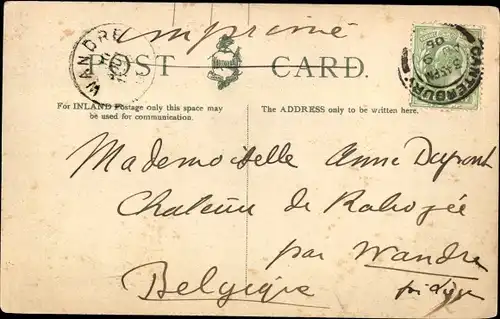 imprimé
WANDRE
POST CARD.
CANTERBURY
3.45PM
05
For INLAND Postage only this space may
be used for communication.
The ADDRESS only to be written here.
Mademoiselle Anne Dupont
Château de Rabozée
par Wandre
Belgique